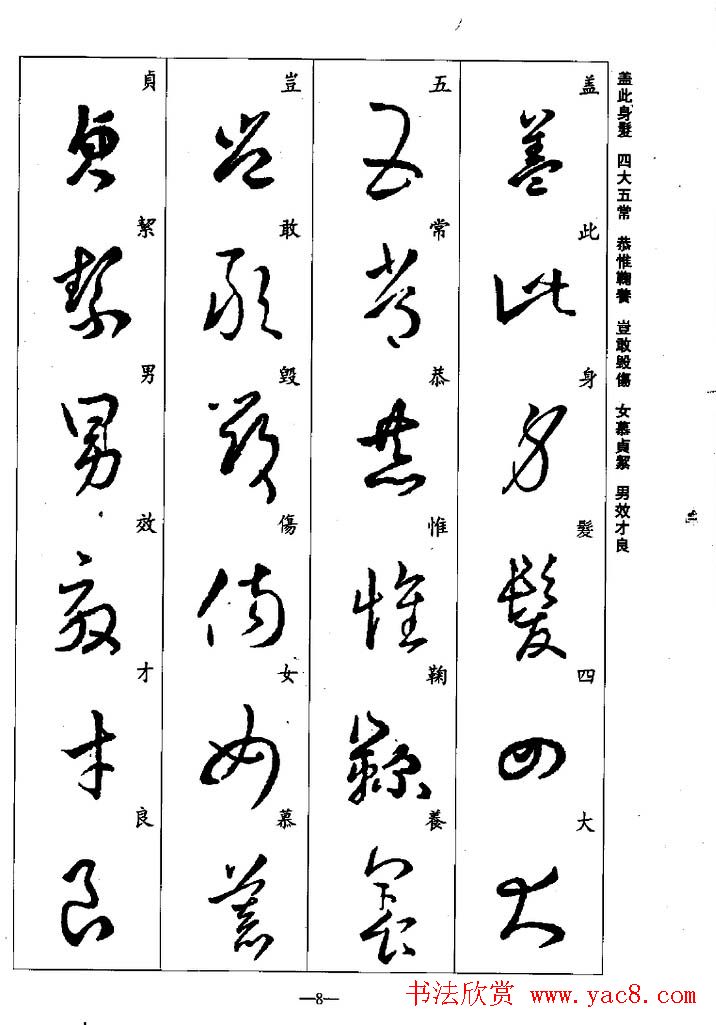 盖此身髮 四大五常 恭惟鞠養 豈敢毀傷 女慕貞絜 男效才良
盖此身髮四大
五常恭惟鞠養
豈敢毀傷女慕
貞絜男效才良
—8—
书法欣赏 www.yac8.com